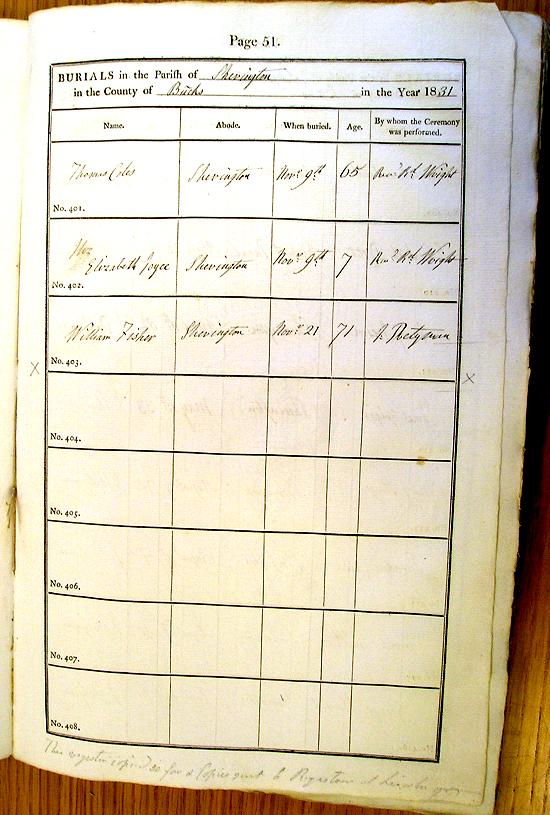 Page 51.
BURIALS in the Parish of Sherington
in the County of Bucks in the Year 1831
Name. Abode. When buried. Age. By whom the Ceremony was performed.
Thomas Coles Sherington Novr 9th 65 Revd Rd Wright
No. 401.
Elizabeth Joyce Sherington Novr 9th 7 Revd Rd Wright
No. 402.
William Fisher Sherington Novr 21 71 J.
No. 403.
X X
No. 404.
No. 405.
No. 406.
No. 407.
No. 408.
This register copied so far & Copies sent to Registrar at Lincoln